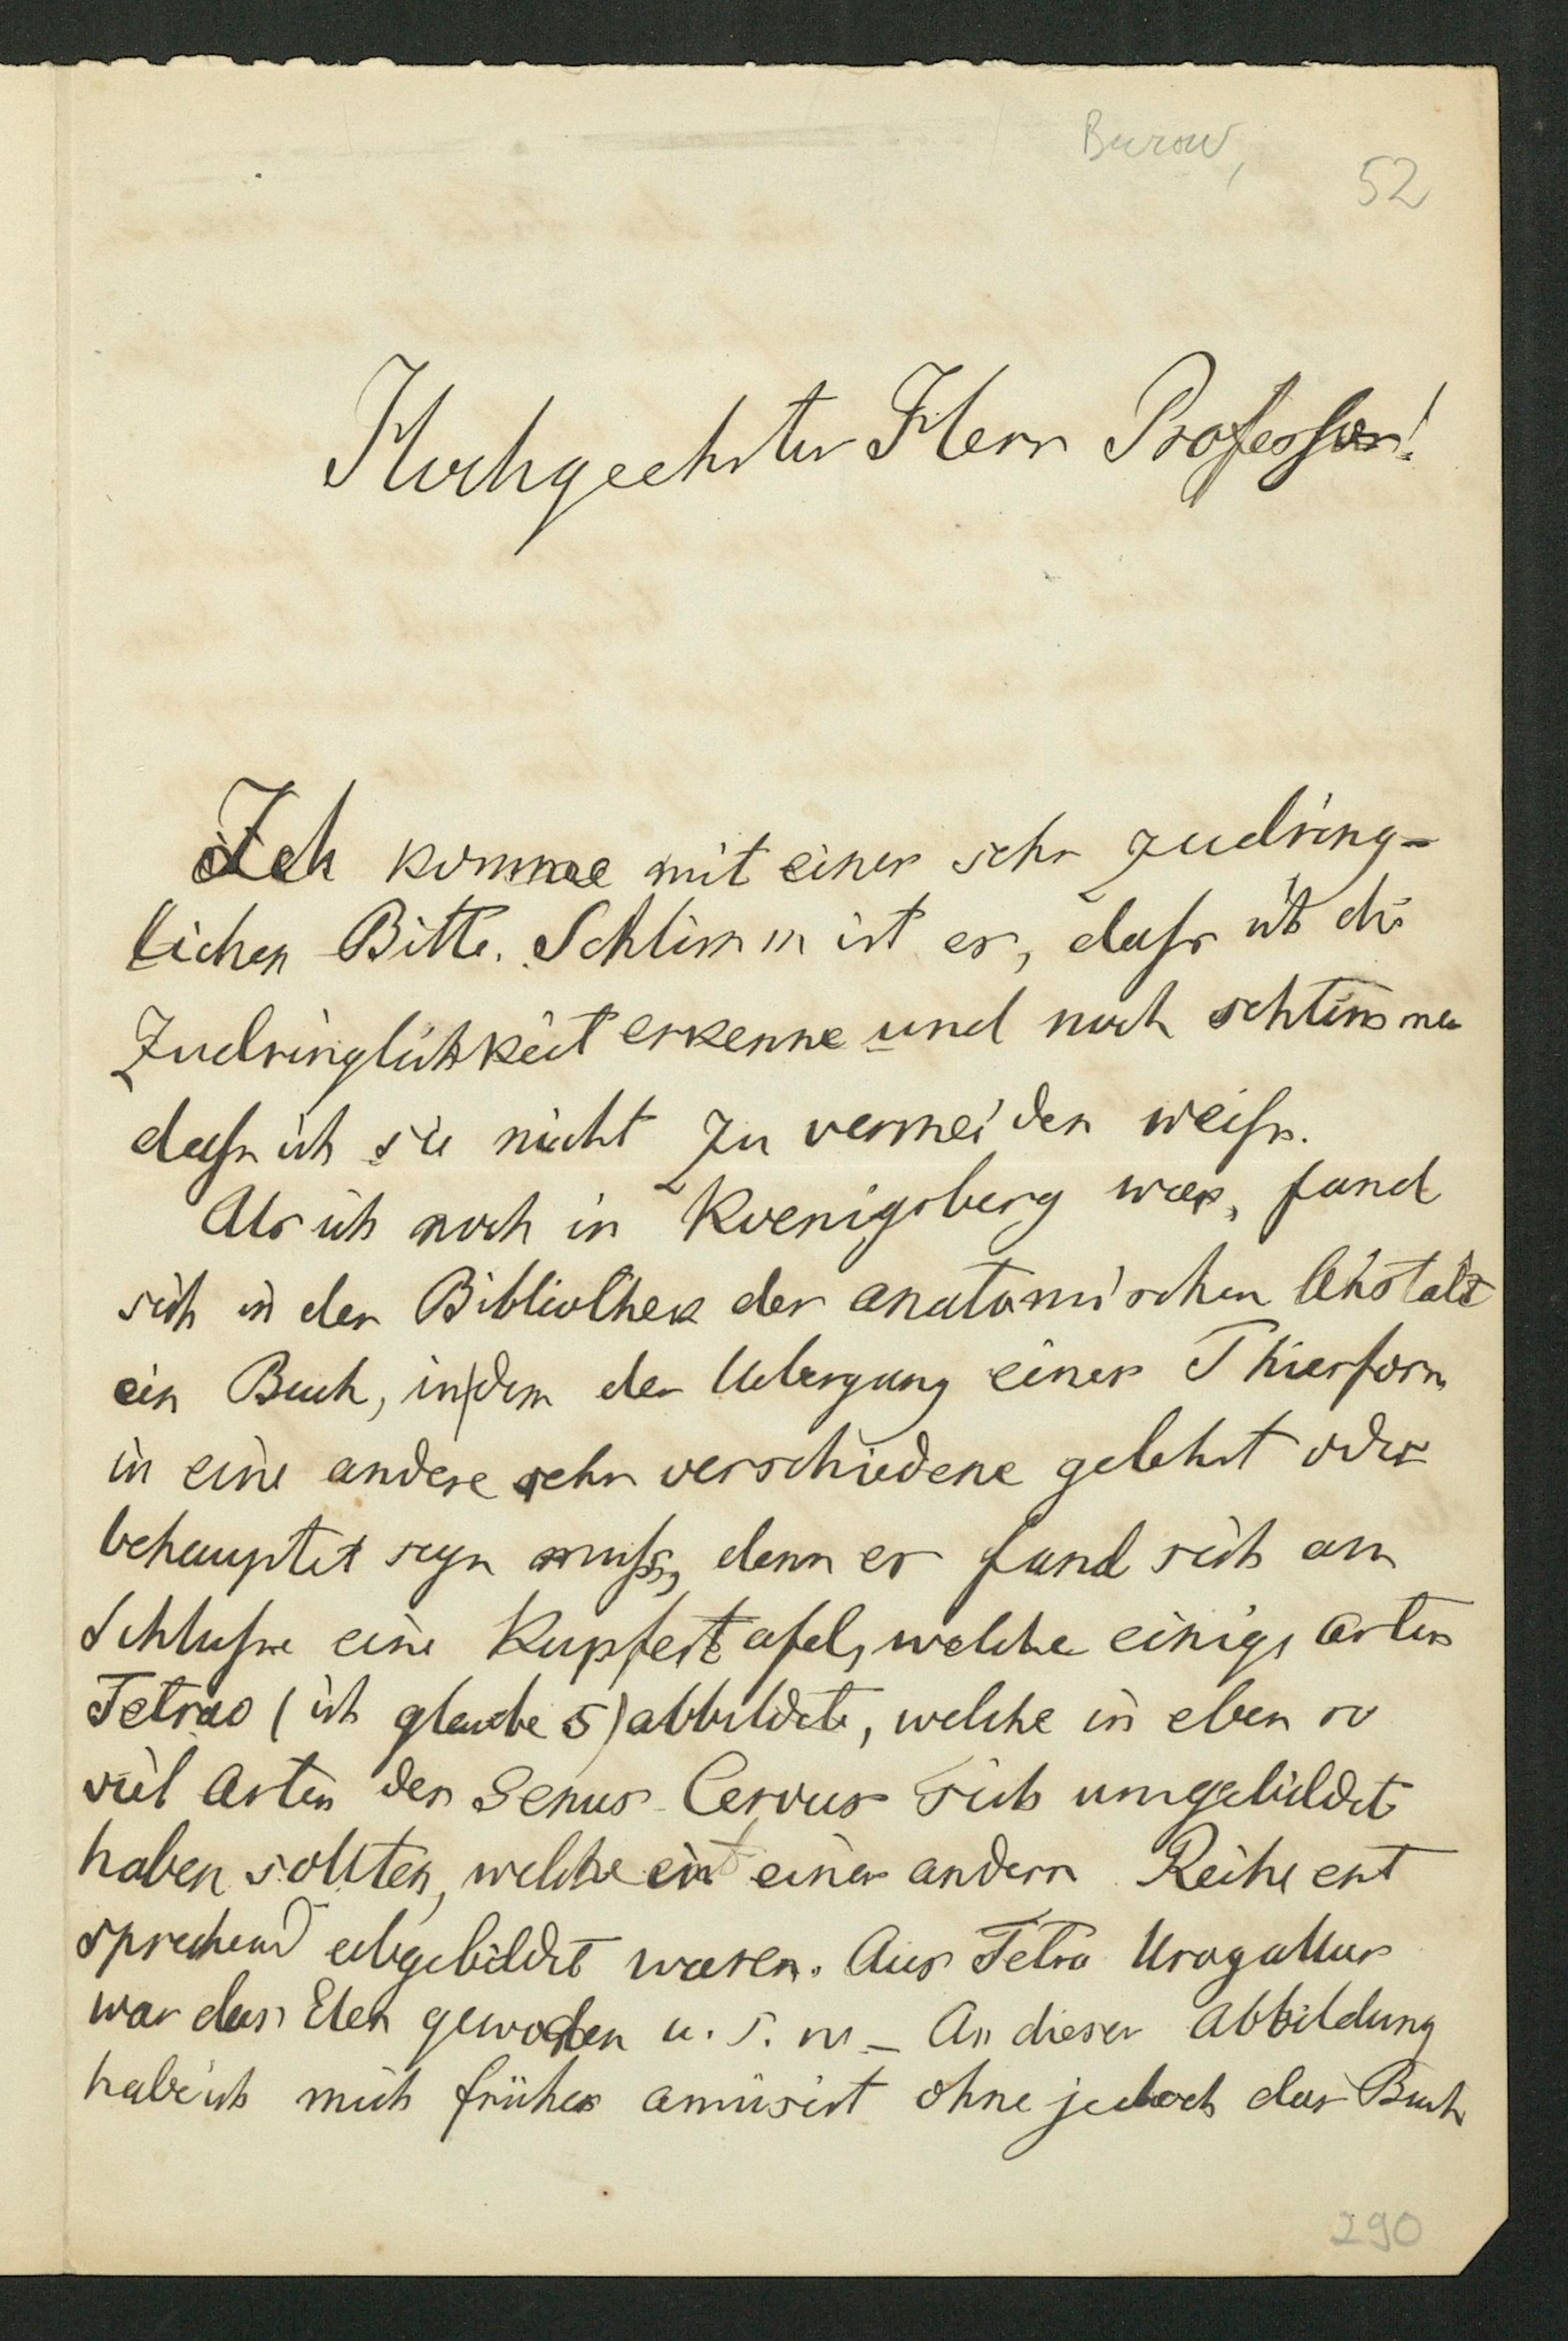 Burow,
52
Hochgeehrter Herr Professor!
Ich komme mit einer sehr zudring-
lichen Bitte. Schlimm ist es, dass ich die
Zudringlichkeit erkenne und noch schlimmer
dass ich sie nicht zu vermeiden weiss.
Als ich noch in Koenigsberg war, fand
sich in der Bibliothek der anatomischen Anstalt
ein Buch, in dem der Uebergang einer Thierform
in eine andere sehr verschiedene gelehrt oder
behauptet seyn muss, denn es fand sich am
Schlusse eine Kupfertafel, welche einige Arten
Tetrao (ich glaube 5) abbildete, welche in eben so
viel Arten des Genus Cervus sich umgebildet
haben sollten, welche in einer andern Reihe ent
sprechend abgebildet waren. Aus Tetra Urogallus
war das Elen geworden u. s. w – An dieser Abbildung
habe ich mich früher amüsirt ohne jedoch das Buch
290